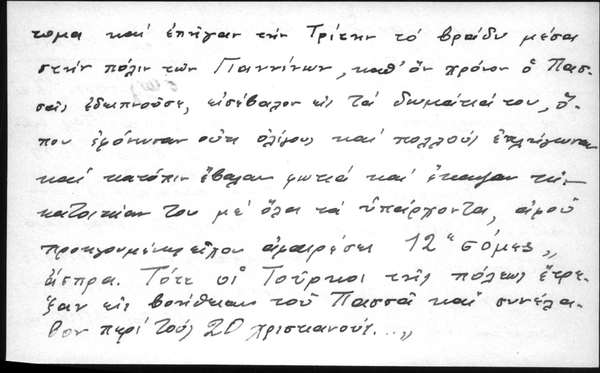 τωμα καί ἐπῆγαν τήν Τρίτην τό βράδυ μέσα
στήν πόλιν τῶν Γιαννίνων, καθ' ὅν χρόνον ὁ Πασ-
σᾶς ἐδειπνοῦσε, εἰσέβαλον εἰς τά δωμάτιά του, ὅ-
που ἐφόνευσαν οὐκ ὀλίγους καί πολλούς ἐπλήγωσαν
καί κατόπιν ἔβαλαν φωτιά καί ἔκαψαν τήν
κατοικίαν του μέ ὅλα τά ὑπάρχοντα, ἀφοῦ
προηγουμένως εἶχον ἀφαιρέσει 12 "σόμες"
ἄσπρα. Τότε οἱ Τοῦρκοι τῆς πόλεως ἔτρε-
ξαν εἰς βοήθειαν τοῦ Πασσᾶ καί συνέλα-
βον περί τούς 20 χριστιανούς...„